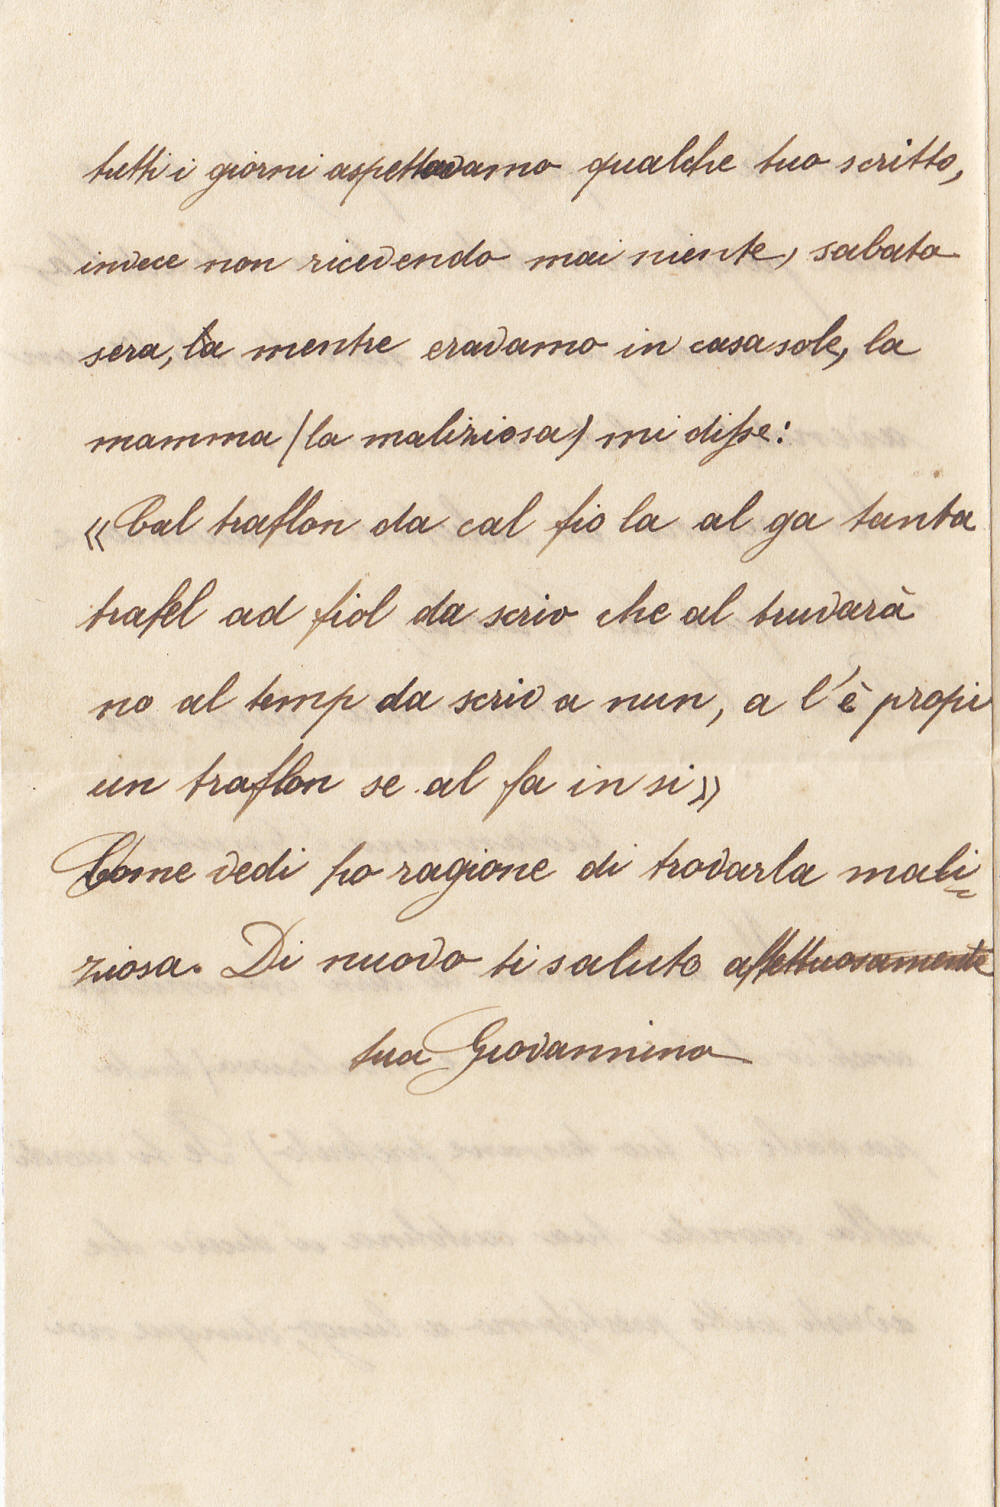 tutti i giorni aspettavamo qualche tuo scritto,
invece non ricevendo mai niente, sabato
sera, la mentre eravamo in casa sole, la
mamma (la maliziosa) mi disse:
«Cal traflon da cal fio la al ga tanta
trafel ad fiol da scriv che al truvarà
no al temp da scriv a nun, a l'è propi
un traflon se al fa in si»
Come vedi ho ragione di trovarla mali=
ziosa. Di nuovo ti saluto affettuosamente
tua Giovannina